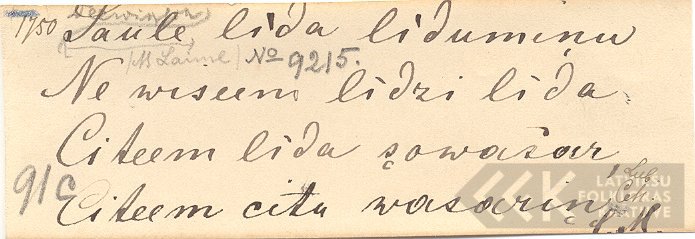 1750
Saule līda līdumiņu
(M Laime) № 9215.
Ne wiseem līdzi līda.
Citeem līda šowasar
916
Citeem citu wasariņ
LATVIEŠU
FOLKLORAS
KRĀTUVE